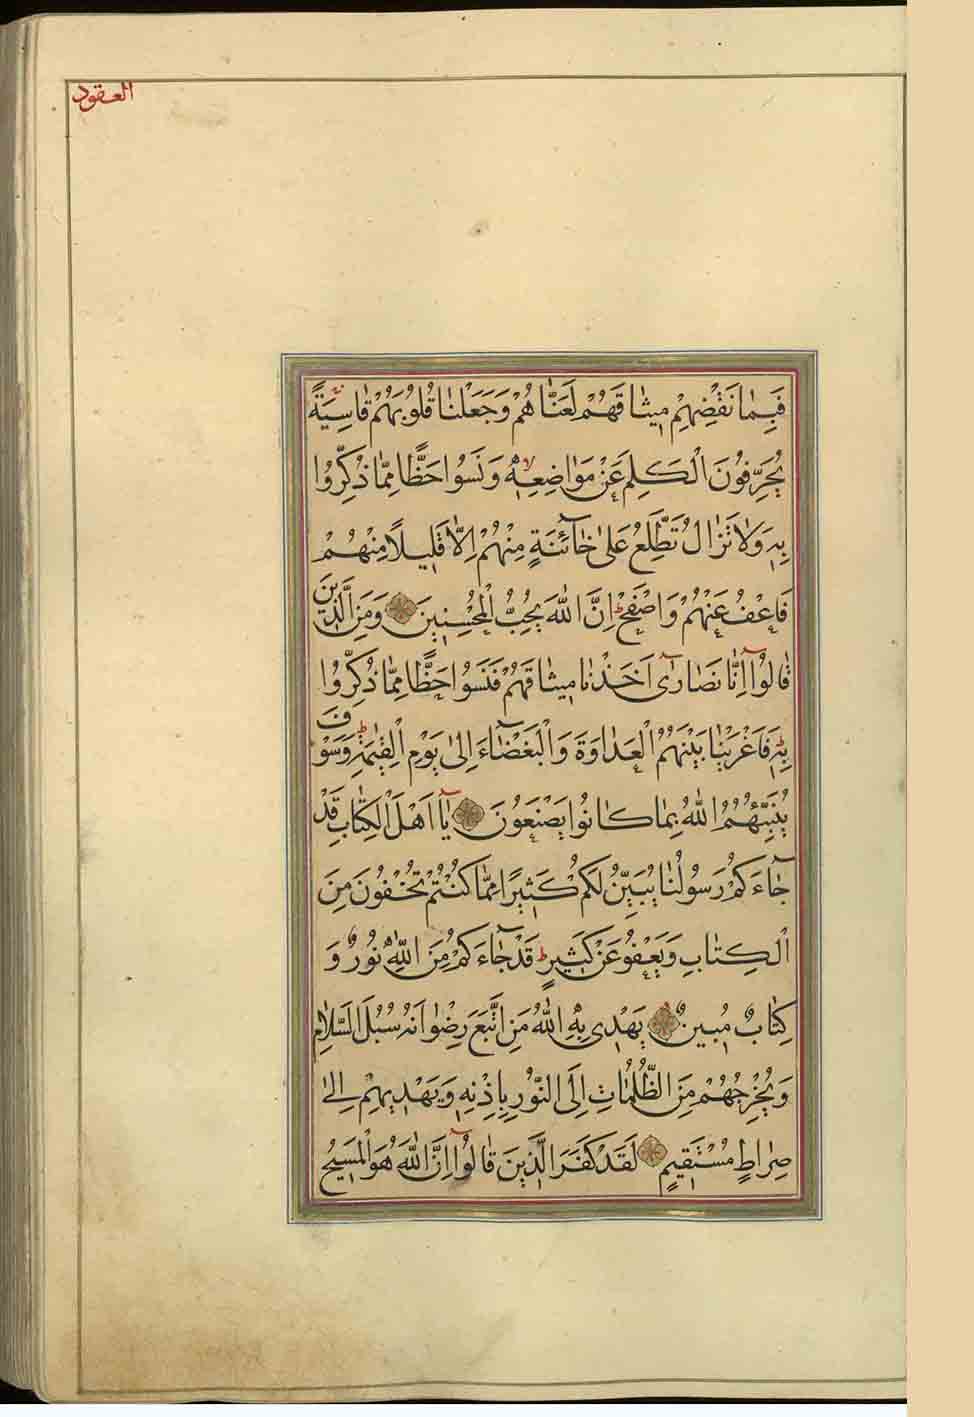 العقود
فَبِمَا نَقْضِهِمْ مِيثَاقَهُمْ لَعَنَّاهُمْ وَجَعَلْنَا قُلُوبَهُمْ قَاسِيَةً
يُحَرِّفُونَ الْكَلِمَ عَنْ مَوَاضِعِهِ وَنَسُوا حَظًّا مِمَّا ذُكِّرُوا
بِهِ وَلَا تَزَالُ تَطَّلِعُ عَلَى خَآئِنَةٍ مِنْهُمْ إِلَّا قَلِيلًا مِنْهُمْ
فَاعْفُ عَنْهُمْ وَاصْفَحْ إِنَّ اللَّهَ يُحِبُّ الْمُحْسِنِينَ وَمِنَ الَّذِينَ
قَالُوآ إِنَّا نَصَارَى أَخَذْنَا مِيثَاقَهُمْ فَنَسُوا حَظًّا مِمَّا ذُكِّرُوا
بِهِ فَأَغْرَيْنَا بَيْنَهُمُ الْعَدَاوَةَ وَالْبَغْضَآءَ إِلَى يَوْمِ الْقِيٰمَةِ وَسَوْفَ
يُنَبِّئُهُمُ اللَّهُ بِمَا كَانُوا يَصْنَعُونَ يَآ أَهْلَ الْكِتَابِ قَدْ
جَآءَكُمْ رَسُولُنَا يُبَيِّنُ لَكُمْ كَثِيرًا مِمَّا كُنْتُمْ تُخْفُونَ مِنَ
الْكِتَابِ وَيَعْفُو عَنْ كَثِيرٍ قَدْ جَآءَكُمْ مِنَ اللَّهِ نُورٌ وَ
كِتَابٌ مُبِينٌ يَهْدِي بِهِ اللَّهُ مَنِ اتَّبَعَ رِضْوَانَهُ سُبُلَ السَّلَامِ
وَيُخْرِجُهُمْ مِنَ الظُّلُمَاتِ إِلَى النُّورِ بِإِذْنِهِ وَيَهْدِيهِمْ إِلَى
صِرَاطٍ مُسْتَقِيمٍ لَقَدْ كَفَرَ الَّذِينَ قَالُوآ إِنَّ اللَّهَ هُوَ الْمَسِيحُ